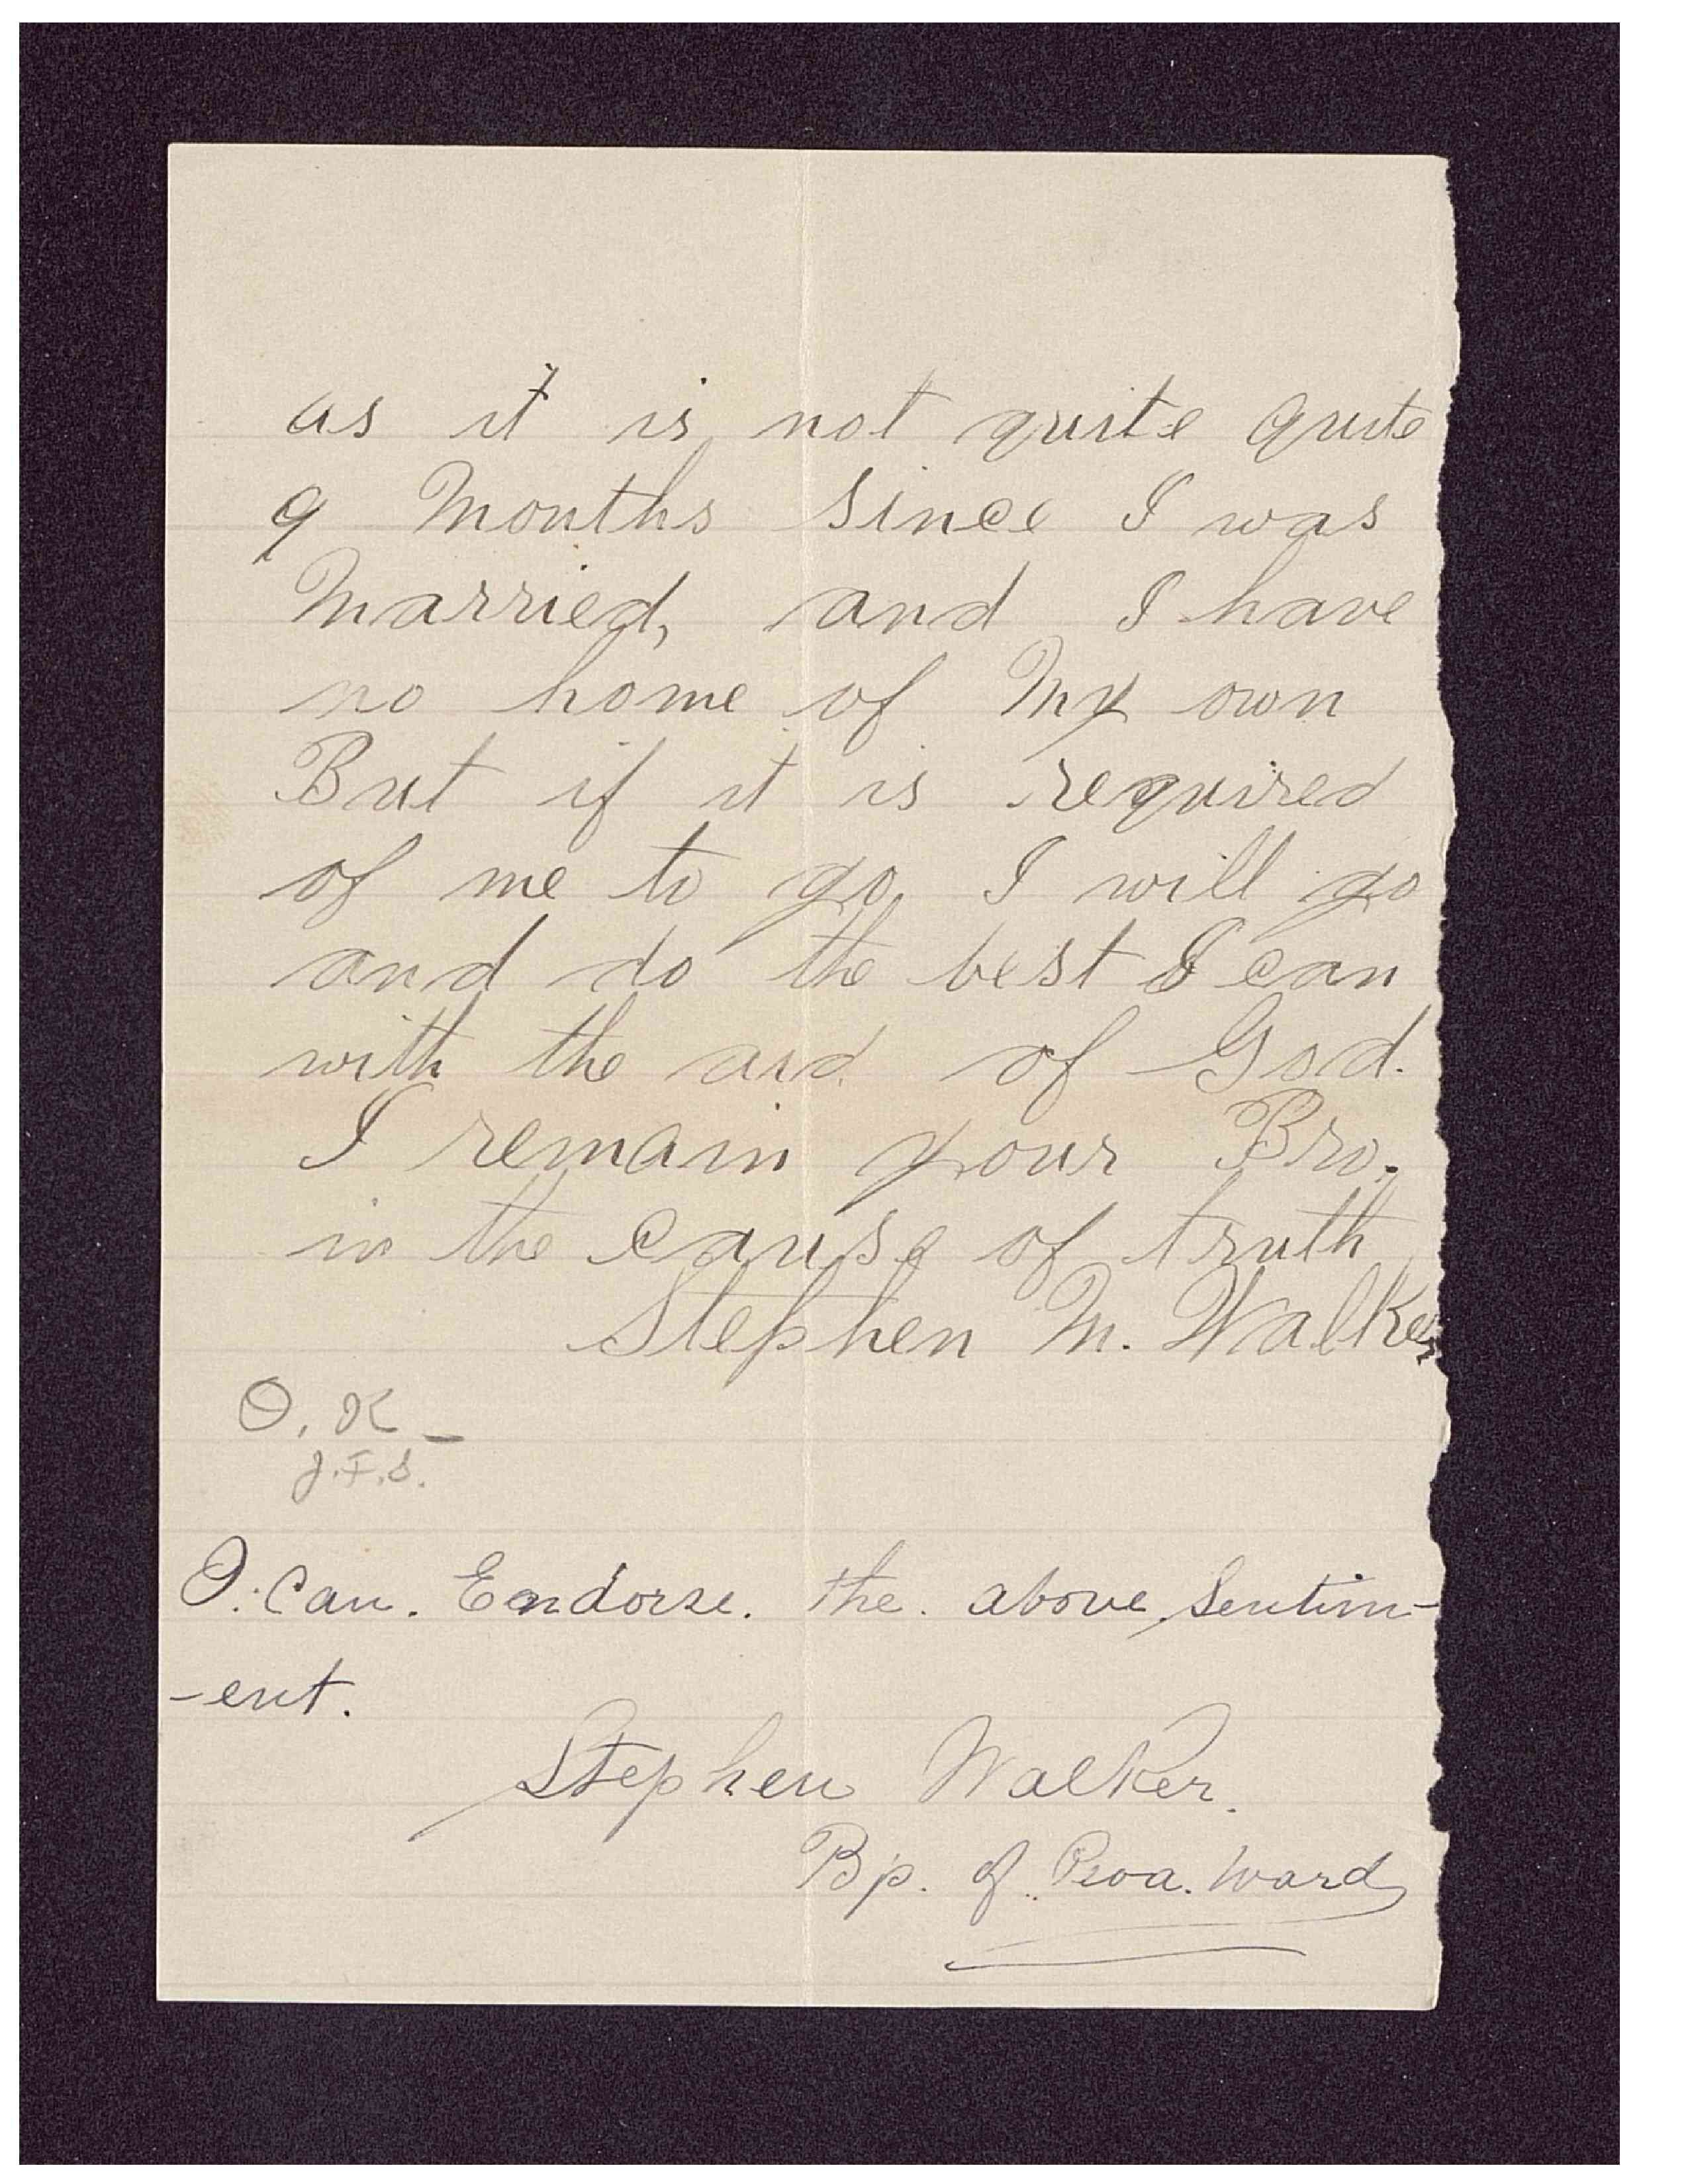 as it is not quite quite
9 Months since I was
Married, and I have
no home of My own
But if it is required
of me to go I will go
and do the best I can
with the aid of God.
I remain your Bro.
in the cause of truth
Stephen M. Walker
O. K –
J.F.S.
I. Can. Endorse. the. above, Sentim-
-ent.
Stephen Walker.
Bp. of Peoa. Ward